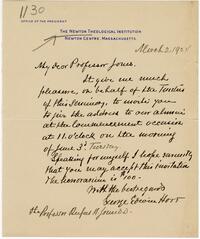 1130
OFFICE OF THE PRESIDENT
THE NEWTON THEOLOGICAL INSTITUTION
NEWTON CENTRE, MASSACHUSETTS
March 2, 192
My dear Professor Jones,
It give me much
pleasure, on behalf of the Trustees
of this Seminary, to invite you
to give the address to our alumni
at the Commencement occasion
at 11.o'clock on the morning
of June 3d. Tuesday
Speaking for myself I hope earnestly
that you may accept this invitation
The honorarium is $100-
With the best regards
George Edwin Horr
Professor Rufus M Jones